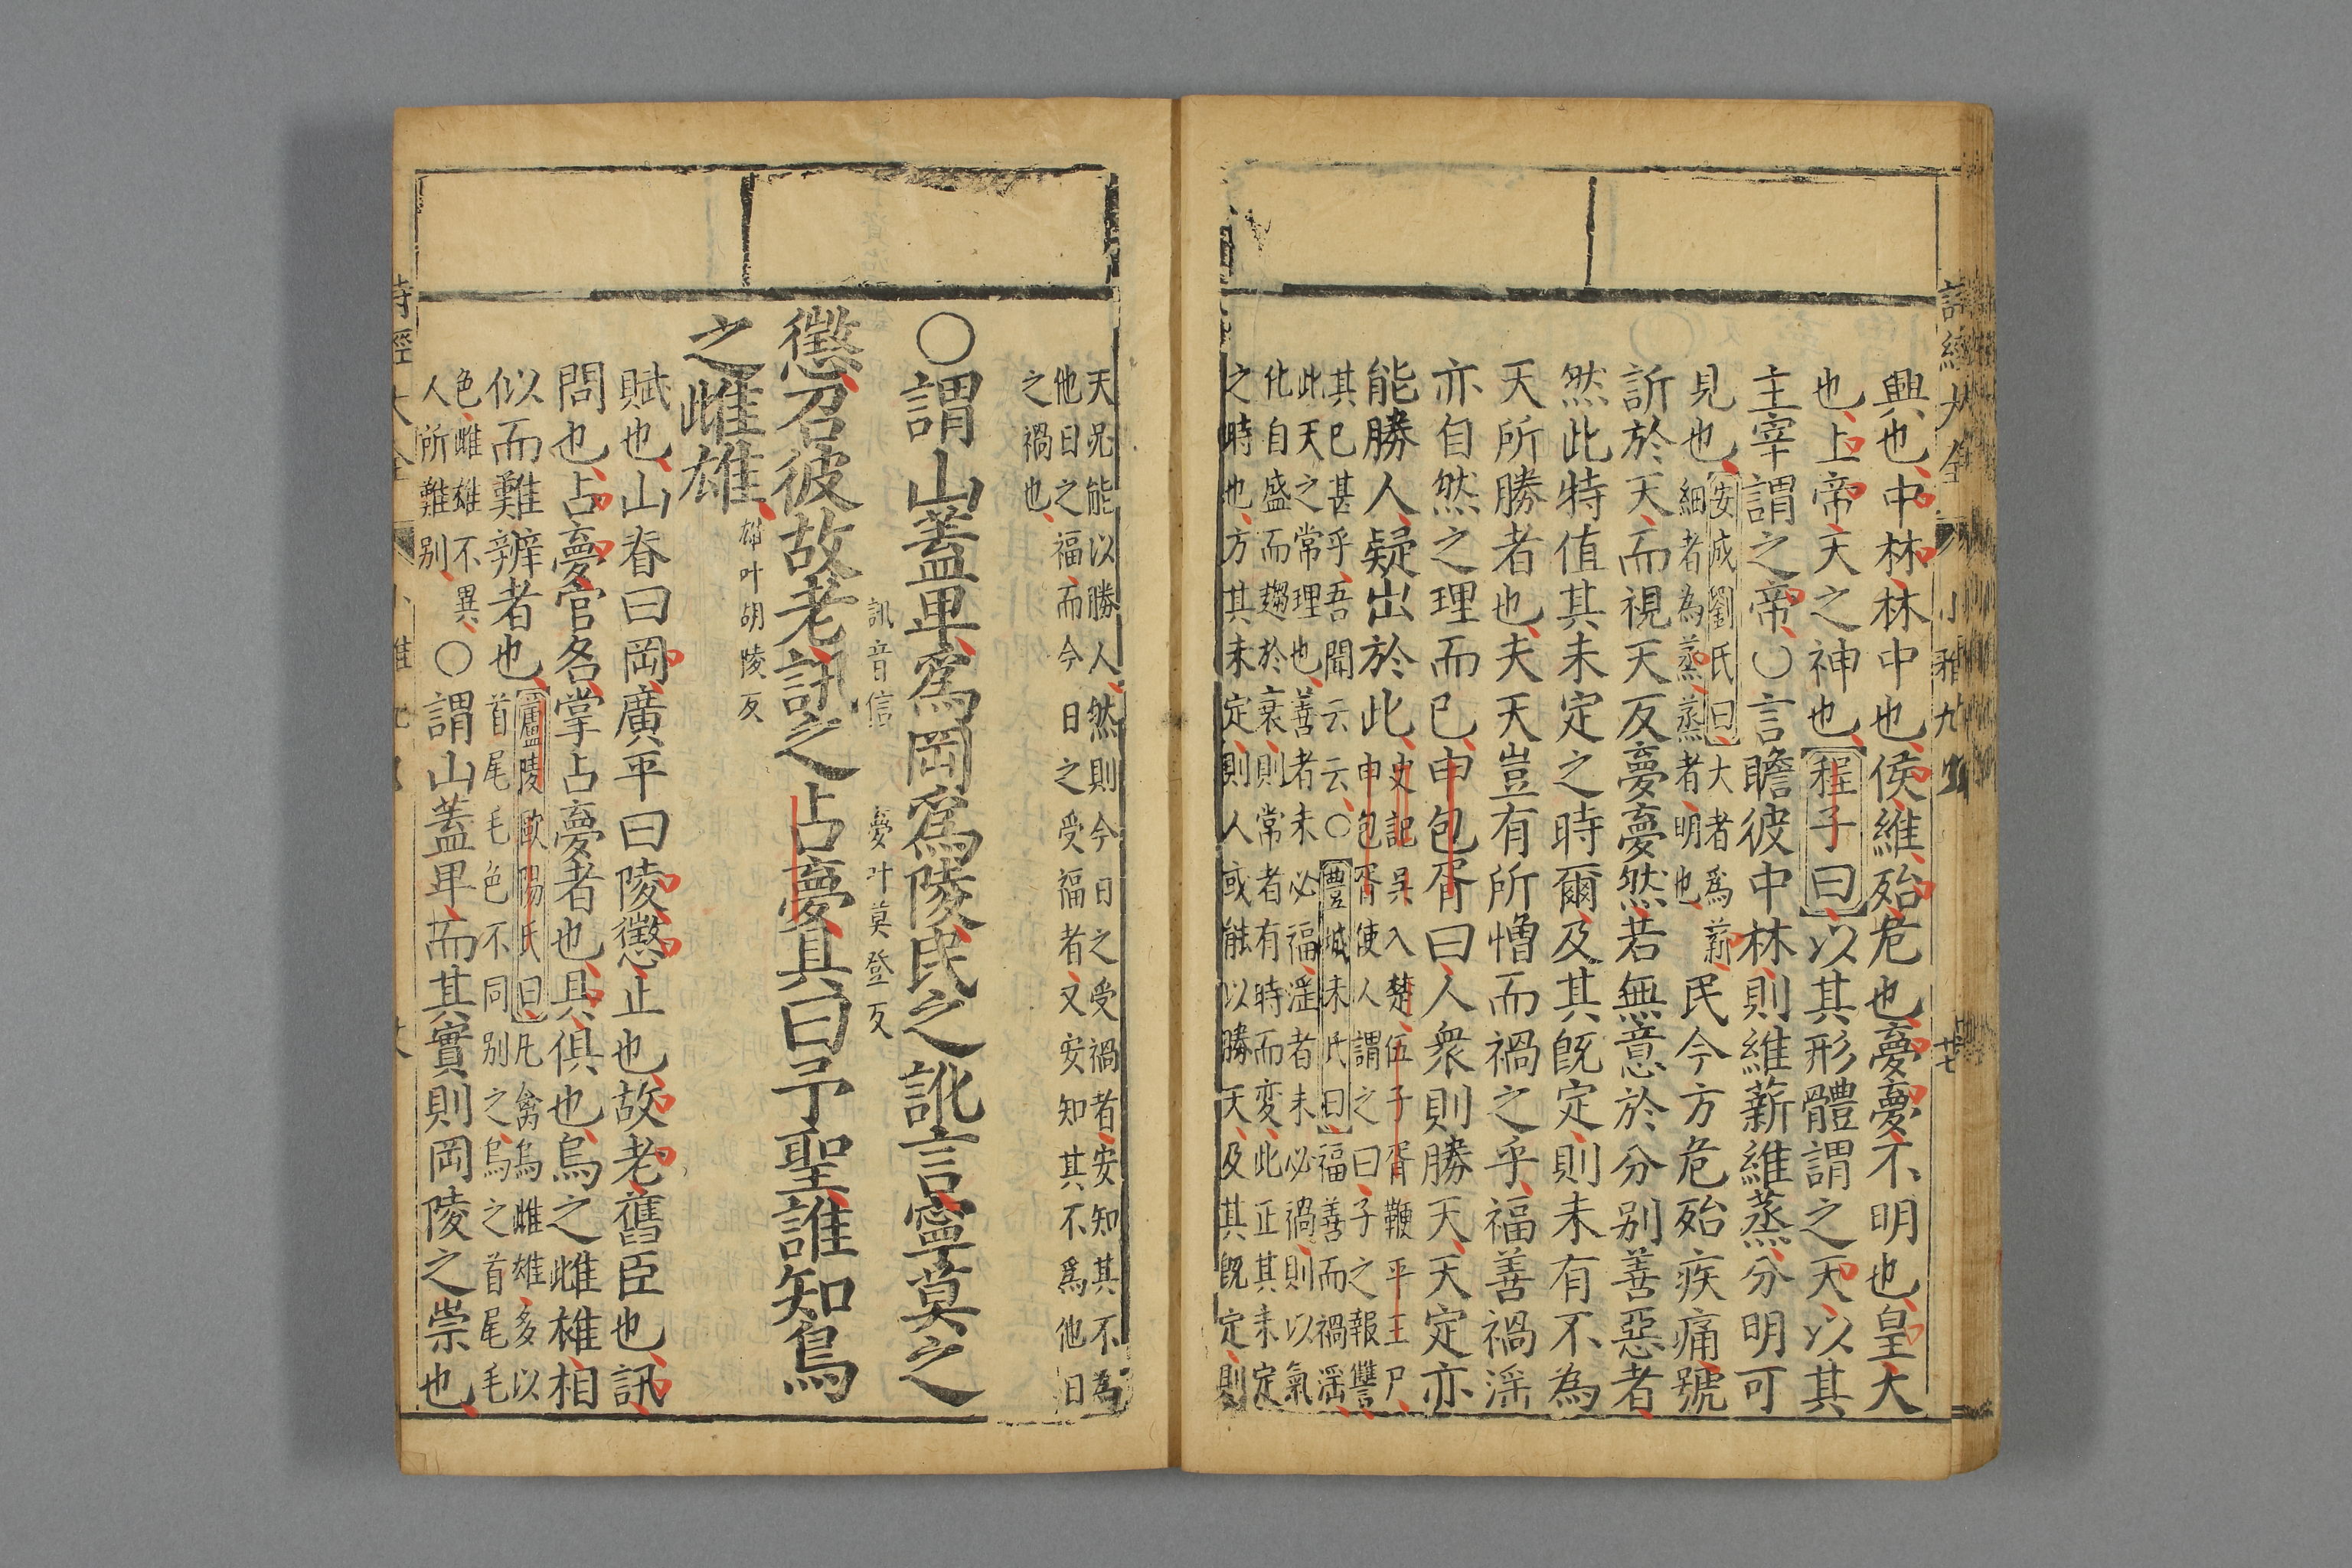 興也中林林中也侯維殆危也夢夢不明也皇大
也上帝天之神也程子曰以其形體謂之天以其
主宰謂之帝○言瞻彼中林則維薪維蒸分明可
見也安成劉氏曰大者爲薪
細者為蒸蒸者明也民今方危殆疾痛號
訴於天而視天反夢夢然若無意於分别善惡者
然此特值其未定之時爾及其旣定則未有不為
天所勝者也夫天豈有所憎而禍之乎福善禍淫
亦自然之理而已申包胥曰人衆則勝天天定亦
能勝人疑出於此史記吳入楚伍子胥鞭平王尸
申包胥使人謂之曰子之報讐
其已甚乎吾聞云云○豐城朱氏曰福善而禍淫
此天之常理也善者未必福淫者未必禍則以氣
化自盛而趨於衰則常者有時而変此正其未定
之時也方其未定則人或能以勝天及其旣定則
天况能以勝人然則今日之受禍者安知其不為
他日之福而今日之受福者又安知其不爲他日
之禍也
○謂山蓋卑爲岡爲陵民之訛言寧莫之
懲召彼故老訊之占夢具曰予聖誰知烏
訊音信 夢叶莫登反
之雌雄
雄叶胡陵反
賦也山脊曰岡廣平曰陵懲止也故老舊臣也訊
問也占夢官名掌占夢者也具俱也烏之雌雄相
似而難辨者也廬陵歐陽氏曰凡禽鳥雌雄多以
首尾毛色不同别之烏之首尾毛
色雌雄不異
人所難别○謂山蓋卑而其實則岡陵之崇也
詩經大全 小雅九 廿七
詩經大全